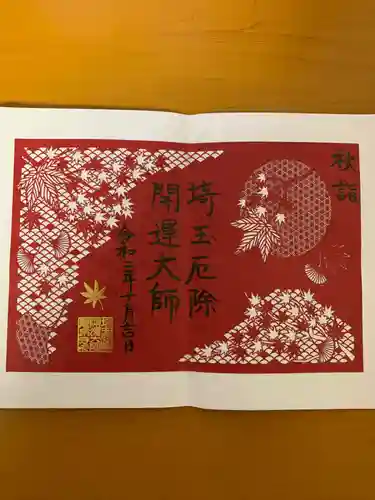 秋詣
埼玉厄除
開運大師
令和三年十月吉日